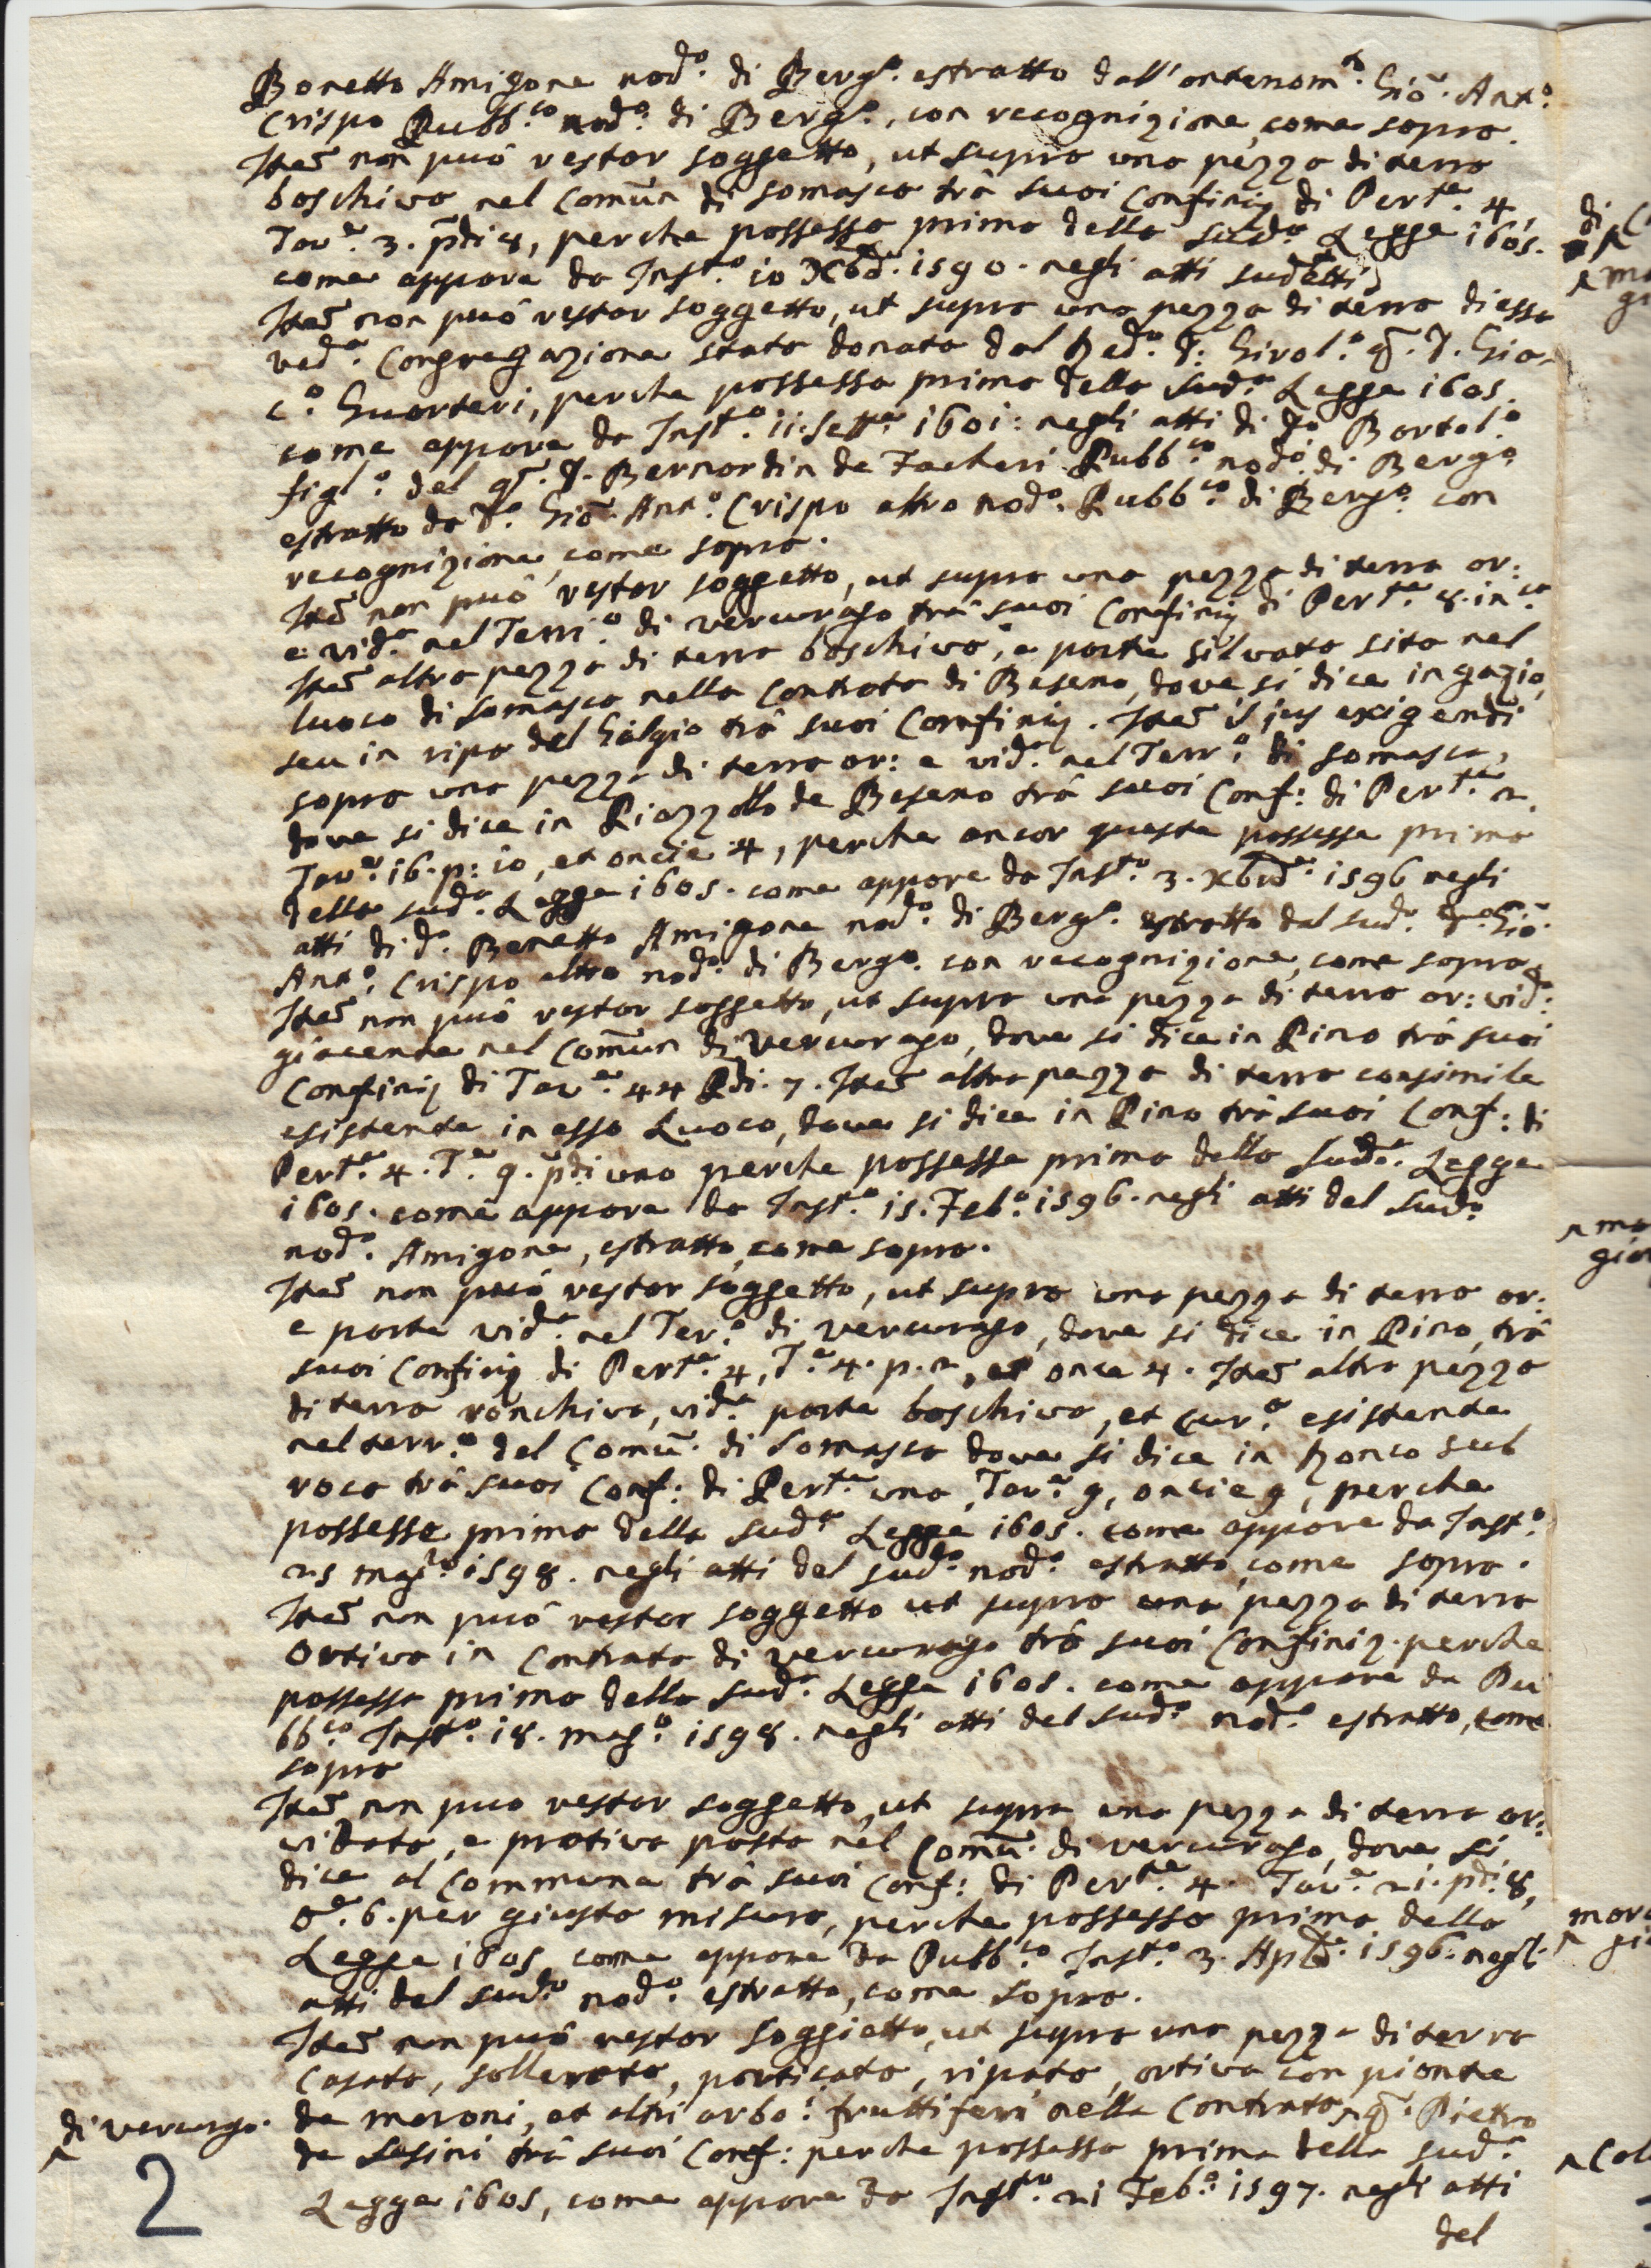 Bonetto Amigone nod.º di Berg.º estratto dall'antenom.º Giõ. Ant.º
Crispo Pubb.co nod.º di Berg.º, con recognizione come sopra.
Item non può restar soggetta, ut supra una pezza di terra
boschiva nel Comun di Somasca trà suoi Confinij di Pert.e 4
Tav.e 3. pdi 8, perche possessa prima della sud.a Legge 1605.
come appare da Inst.º 10 Xbre. 1590. negli atti sudetti
Item non può restar soggetta, ut supra una pezza di terra di essa
ved.a Congregazione stata donata dal Red.º D: Girol.º q. D. Gia-
c.º Guarteri, perche possessa prima della sud.a Legge 1605.
come appare da Inst.º 11. Sett.e 1601: negli atti di Bortol.º
figl.º del q. D. Bernardin de Facheri Pubb.co nod.º di Berg.º
estratto da d.º Giõ. Ant.º Crispo altro nod.º Pubb.co di Berg.º con
recognizione, come sopra.
Item non può restar soggetta, ut supra una pezza di terra ar:
e vid.a nel Terri.º di Vercurago trà suoi Confinij di Pert.e 8. in c.a
Item altra pezza di terra boschiva, e parte silvata sita nel
luoco di Somasca nella Contrata di Beseno, dove si dice in gazio,
seu in ripa del Galgio trà suoi Confinij. Item il jus exigendi
sopra una pezza di terra ar: e vid.a nel Terr.º di Somasca,
dove si dice in Piazzolo de Beseno trà suoi Conf: di Pert.e 2.
Tav.e 16. p: 10, et oncie 4, perche ancor questa possessa prima
della sud.a Legge 1605. come appare da Inst.º 3. Xbre. 1596 negli
atti di d.º Benetto Amigone nod.º di Berg.º estratto dal sud.º d.º Giõ.
Ant.º Crispo altro nod.º di Berg.º con recognizione, come sopra.
Item non può restar soggetta, ut supra una pezza di terra ar: vid.a
giacente nel Comun di Vercurago, dove si dice in Pino trà suoi
Confinij di Tav.e 44 Pdi. 7. Item altra pezza di terra consimile
esistente in esso Luoco, dove si dice in Pino trà suoi Conf: di
Pert.e 4. T.e 9. pdi uno perche possessa prima della sud.a Legge
1605. come appare da Inst.º 15. Feb.º 1596. negli atti del sud.º
nod.º Amigone, estratto, come sopra.
Item non può restar soggetta, ut supra una pezza di terra ar:
e parte vid.a nel Ter.º di Vercurago, dove si dice in Pino, trà
suoi Confinij di Pert.e 4, T.e 4. p. 2, et once 4. Item altra pezza
di terra ronchiva, vid.a parte boschiva, et esistente
nel terr.º del Comu. di Somasca dove si dice in Ronco sub
roca trà suoi Conf: di Pert.e una, Tav.e 9, oncie 9, perche
possessa prima della sud.a Legge 1605. come appare da Inst.º
25 mag.º 1598. negli atti del sud.º nod.º estratto, come sopra.
Item non può restar soggetta ut supra una pezza di terra
ortiva in Contrata di Vercurago trà suoi Confinij. perche
possessa prima della sud.a Legge 1605. come appare da Pu
bb.co Inst.º 18. mag.º 1598. negli atti del sud.º nod.º estratto, come
sopra
Item non puo restar soggetta, ut supra una pezza di terra ar:
vidata, e prativa posta nel Comu. di Vercurago, dove si
dice al Communa trà suoi Conf: di Pert.e 4. Tav.e 21. pdi. 8,
O.e 6. per giusta misura, perche possessa prima della
Legge 1605, come appare da Pubb.co Inst.º 3. Aple. 1596. negl.
atti del sud.º nod.º estratto, come sopra.
Item non può restar soggietta, ut supra una pezza di terra
Casata, sollerata, porticata, ripata, ortiva con piante
de moroni, et altri arbo: fruttiferi nella Contrata ^ q. Pietro
di Vercurgo.
de Sesini trà suoi Conf: perche possessa prima della sud.a
2
Legge 1605, come appare da Inst.º 21 Feb.º 1597. negli atti
del